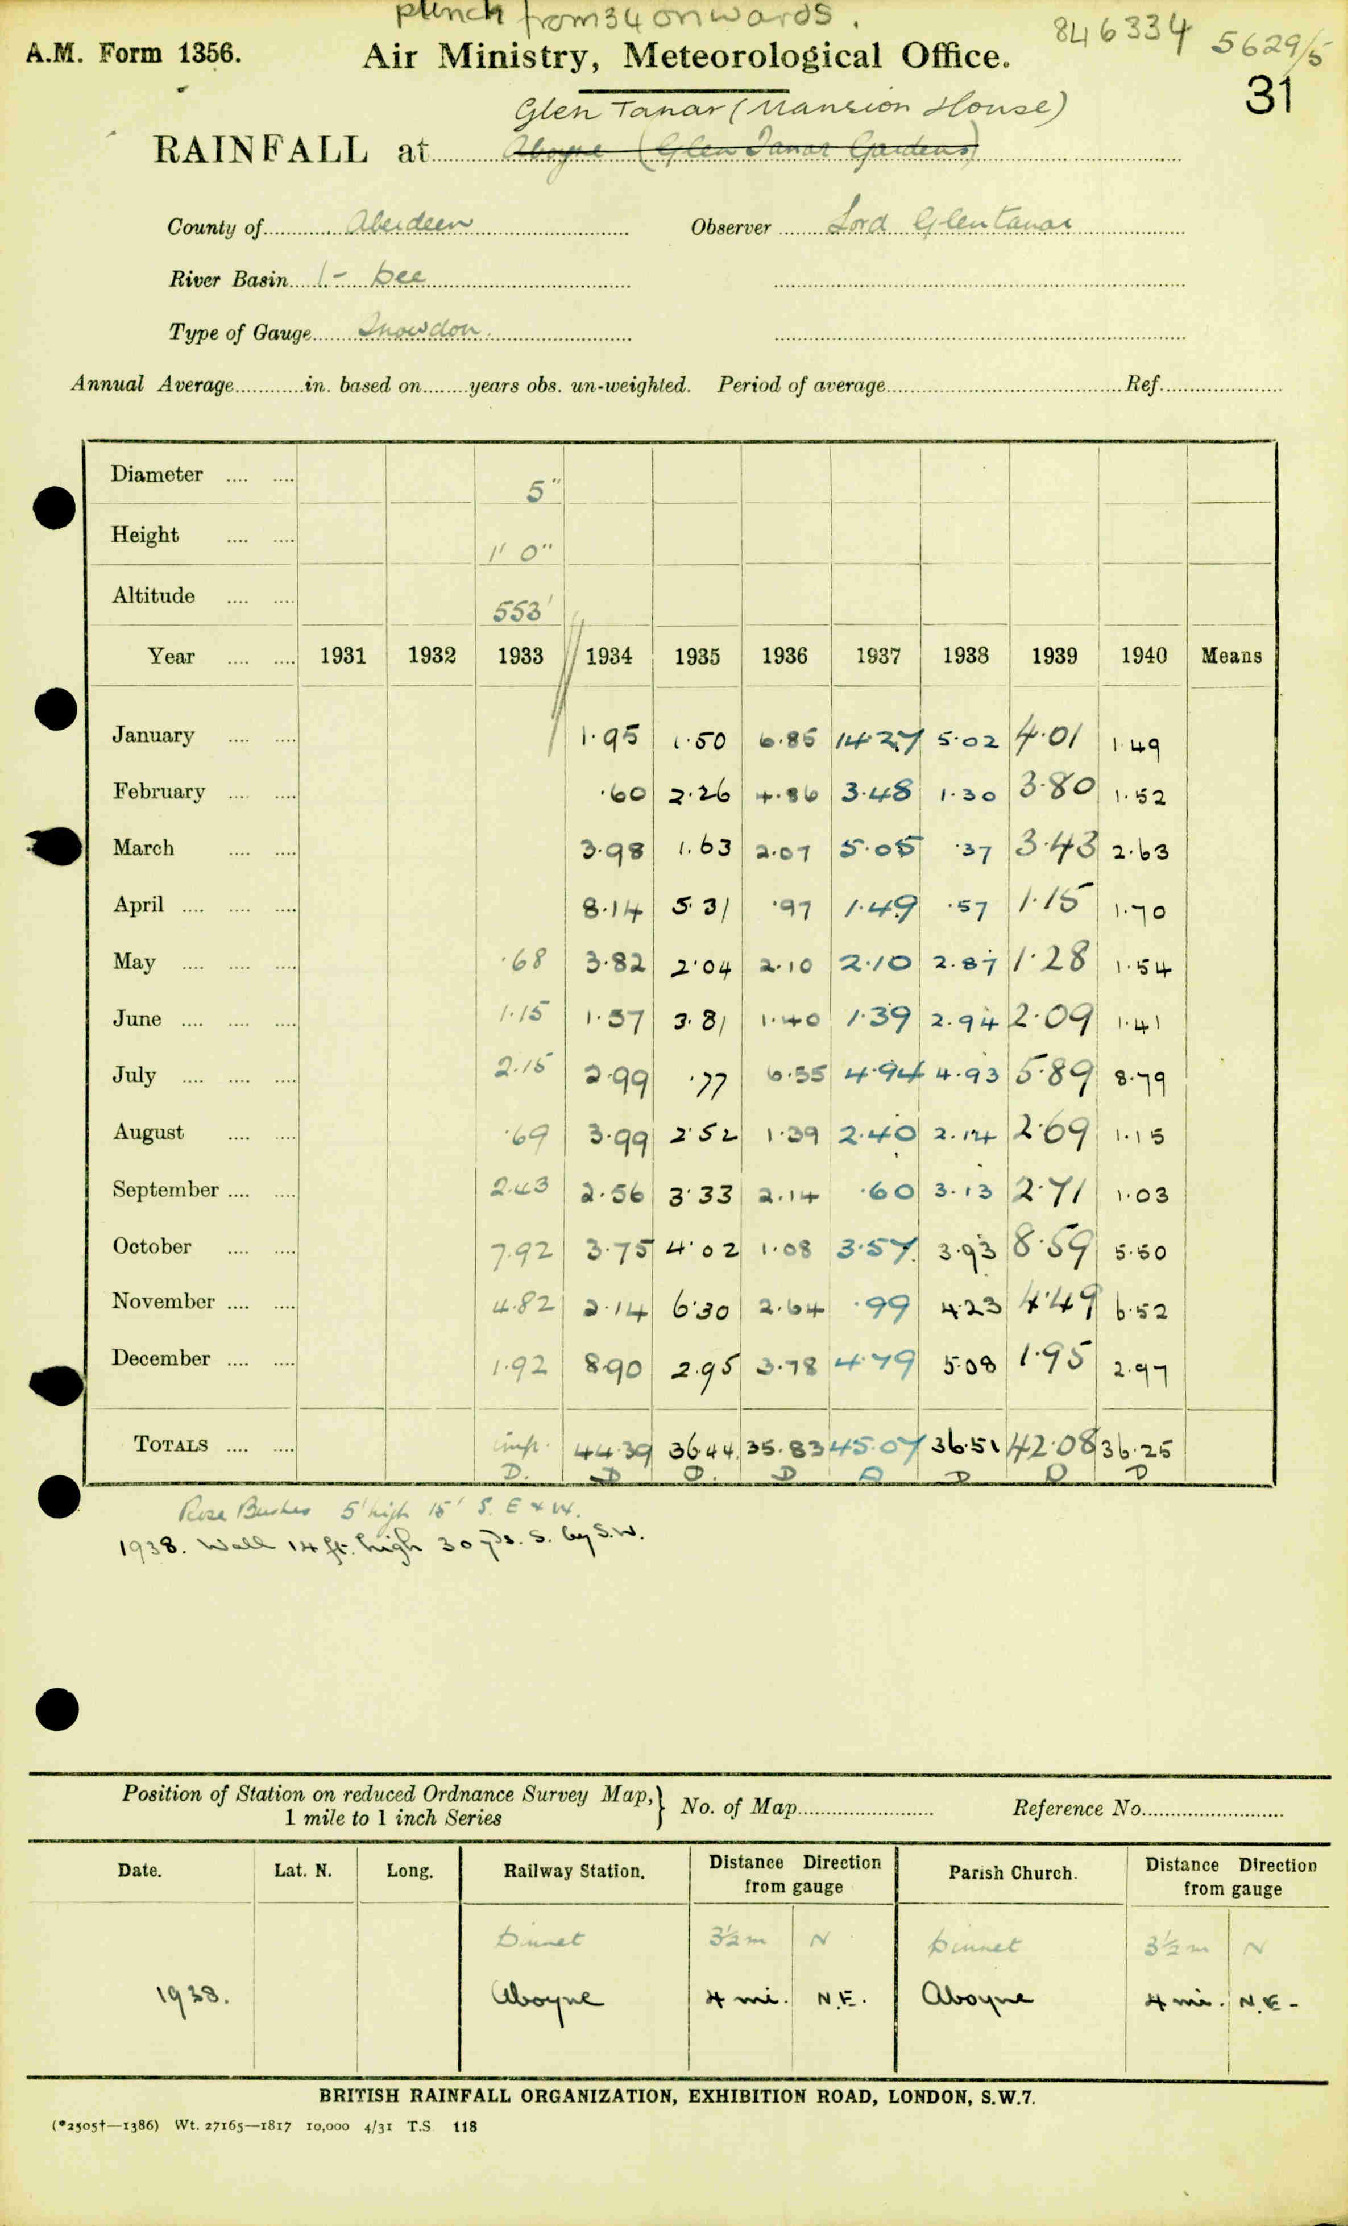 punch from 34 onwards.
846334 5629/5
A.M. Form 1356. Air Ministry, Meteorological Office.
31
Glen Tanar (Mansion House)
RAINFALL at Aboyne (Glen Tanar Gardens)
County of Aberdeen Observer Lord Glentanar
River Basin 1 - Dee
Type of Gauge Snowdon.
Annual Average in. based on years obs. un-weighted. Period of average Ref.
Diameter 5"
Height 1' 0"
Altitude 553'
Year 1931 1932 1933 1934 1935 1936 1937 1938 1939 1940 Means
January 1.95 1.50 6.85 14.27 5.02 4.01 1.49
February .60 2.26 4.86 3.48 1.30 3.80 1.52
March 3.98 1.63 2.07 5.05 .37 3.43 2.63
April 8.14 5.31 .97 1.49 .57 1.15 1.70
May .68 3.82 2.04 2.10 2.10 2.87 1.28 1.54
June 1.15 1.57 3.81 1.40 1.39 2.94 2.09 1.41
July 2.15 2.99 .77 6.55 4.94 4.93 5.89 8.79
August .69 3.99 2.52 1.39 2.40 2.14 2.69 1.15
September 2.43 2.56 3.33 2.14 .60 3.13 2.71 1.03
October 7.92 3.75 4.02 1.08 3.57 3.93 8.59 5.50
November 4.82 2.14 6.30 2.64 .99 4.23 4.49 6.52
December 1.92 8.90 2.95 3.78 4.79 5.08 1.95 2.97
TOTALS imp. 44.39 36.44 35.83 45.07 36.51 42.08 36.25
D. D D. D D D D D
Rose Bushes 5' high 15' S. E & W.
1938. Wall 14 ft. high 30 yds. S. by S.W.
Position of Station on reduced Ordnance Survey Map, 1 mile to 1 inch Series } No. of Map Reference No.
Date. Lat. N. Long. Railway Station. Distance Direction from gauge Parish Church. Distance Direction from gauge
Dinnet 3½ m N Dinnet 3½ m N
1938. Aboyne 4 mi. N.E. Aboyne 4 mi. N.E-
BRITISH RAINFALL ORGANIZATION, EXHIBITION ROAD, LONDON, S.W.7.
(*2505†—1386) Wt. 27165—1817 10,000 4/31 T.S 118